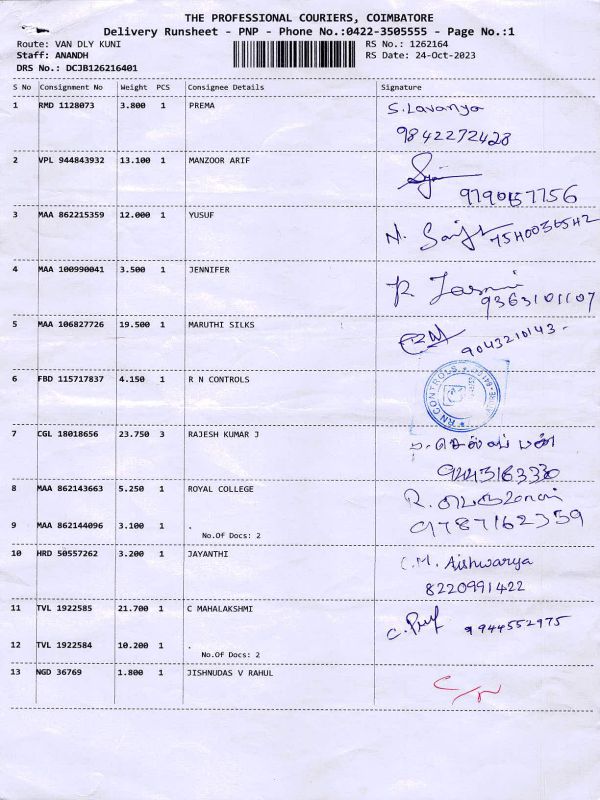 THE PROFESSIONAL COURIERS, COIMBATORE
Delivery Runsheet - PNP - Phone No.:0422-3505555 - Page No.:1
Route: VAN DLY KUNI RS No.: 1262164
Staff: ANANDH RS Date: 24-Oct-2023
DRS No.: DCJB126216401
S No Consignment No Weight PCS Consignee Details Signature
1 RMD 1128073 3.800 1 PREMA S. Lavanya
9842272428
2 VPL 944843932 13.100 1 MANZOOR ARIF
3 MAA 862215359 12.000 1 YUSUF
4 MAA 100990041 3.500 1 JENNIFER
9363101107
5 MAA 106827726 19.500 1 MARUTHI SILKS
9043210143
6 FBD 115717837 4.150 1 R N CONTROLS
RN CONTROLS
7 CGL 18018656 23.750 3 RAJESH KUMAR J
8 MAA 862143663 5.250 1 ROYAL COLLEGE
9 MAA 862144096 3.100 1 . 9787162359
No.Of Docs: 2
10 HRD 50557262 3.200 1 JAYANTHI C.M. Aishwarya
8220991422
11 TVL 1922585 21.700 1 C MAHALAKSHMI
9944552975
12 TVL 1922584 10.200 1 .
No.Of Docs: 2
13 NGD 36769 1.800 1 JISHNUDAS V RAHUL